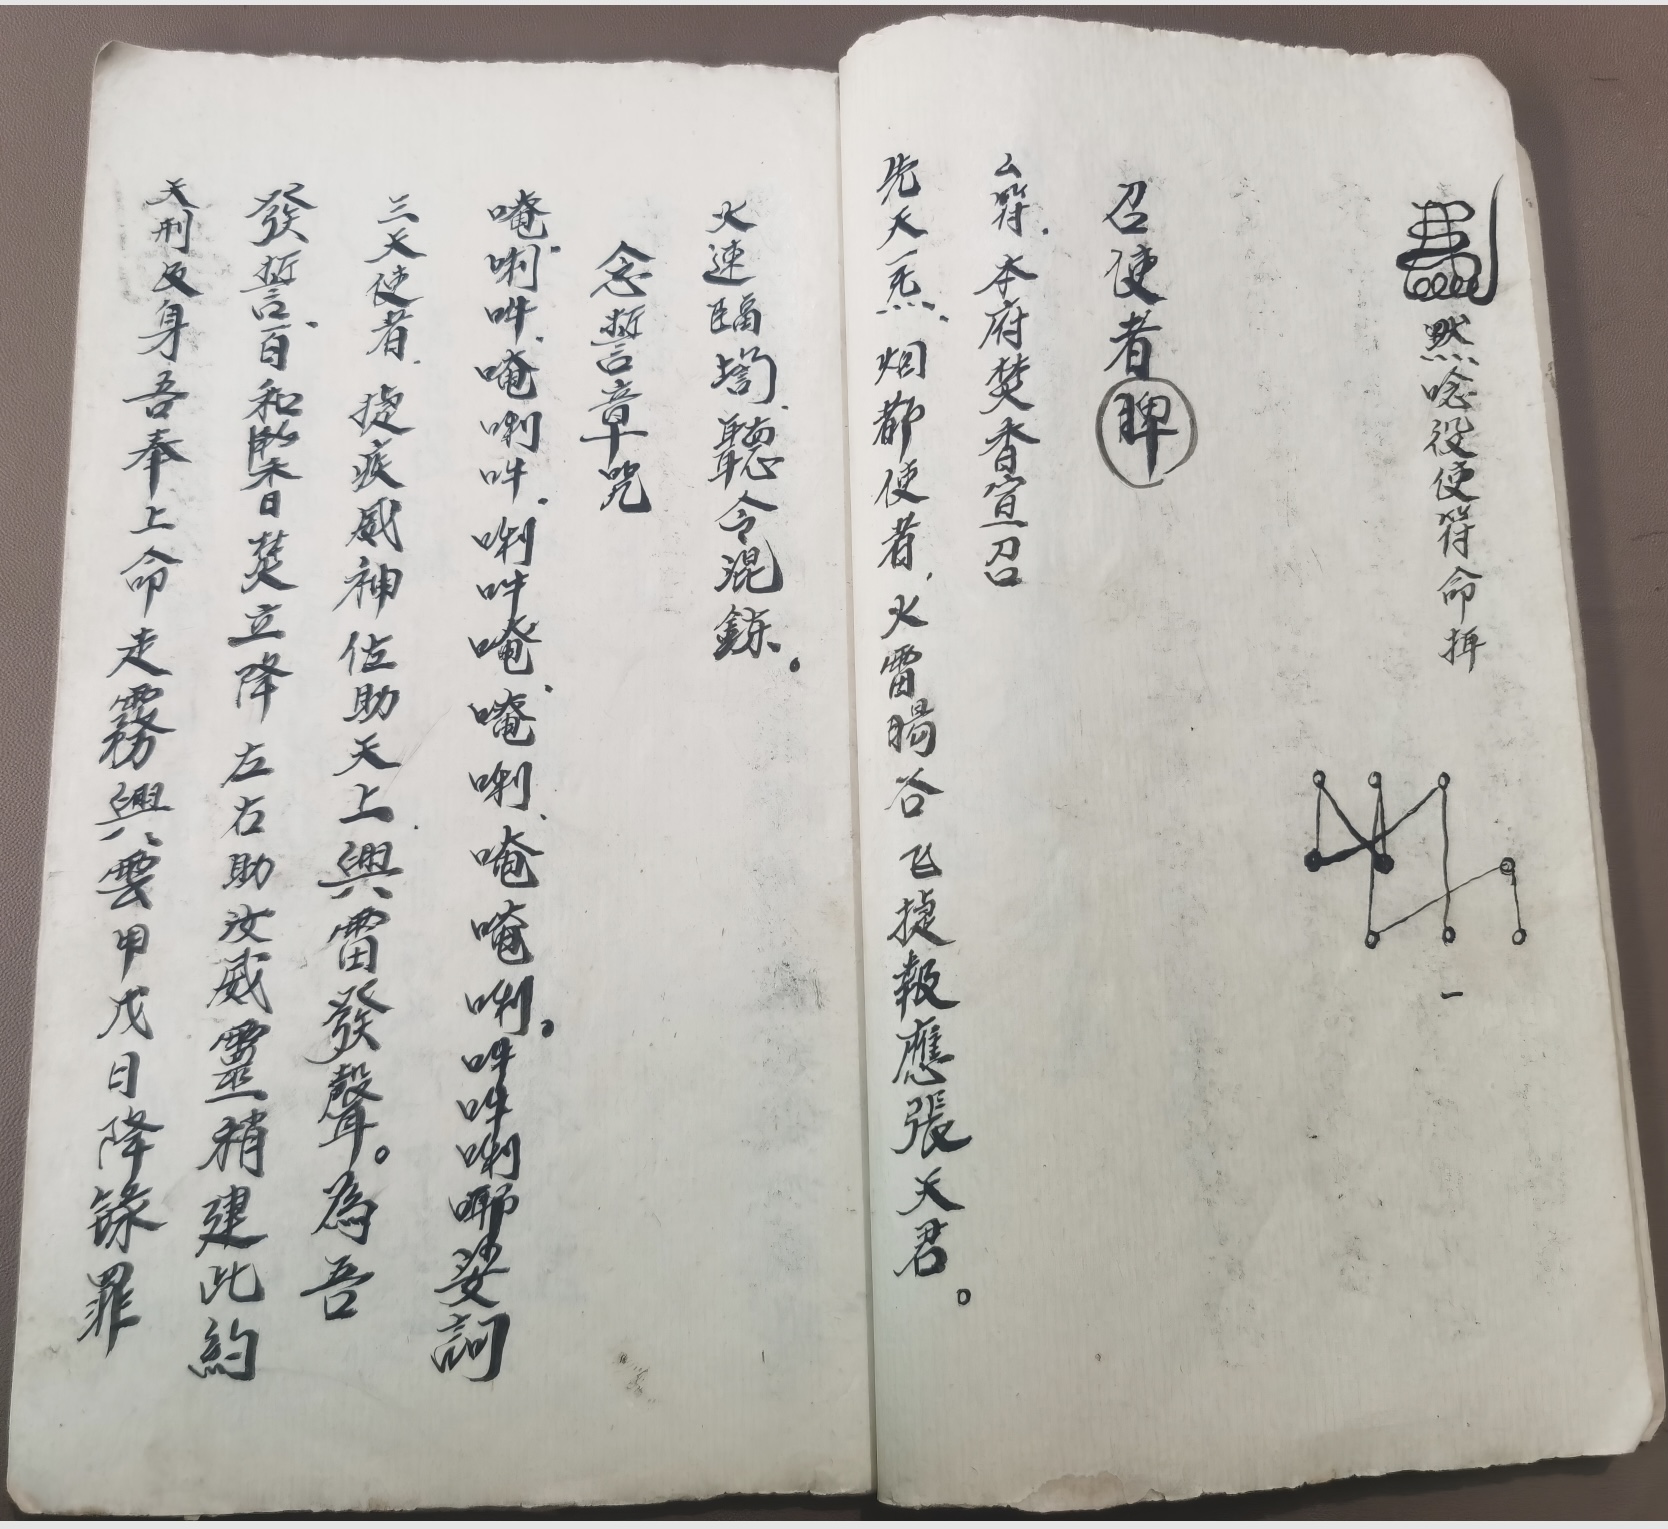 默唸役使符命拜
一
召使者脾
厶符.本府焚香宣召
先天一炁.烟都使者,火雷暘谷飞捷報應張天君。
火速臨壇.聽令混鍊.。
念誓章咒
唵.唎吽.唵唎吽.唎吽唵.唵唎.唵唵唎。吽吽唎哪娑訶
三天使者.捷疾威神佐助天上.興雷發聲。為吾
發誓.百和緊香焚立降左右助汝威靈稍建此約
天刑反身吾奉上命走霧興雲甲戊日降錄罪